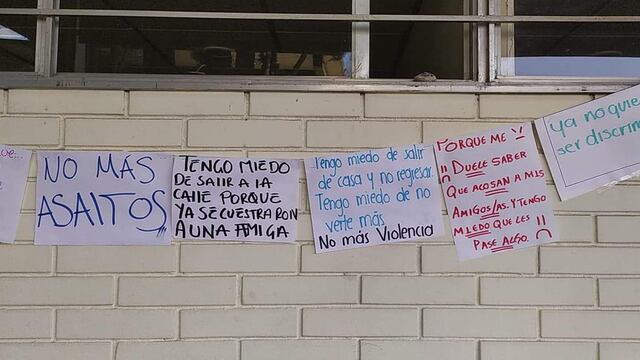 ue...
NO MÁS
ASAITOS
TENGO MIEDO
DE SALIR A LA
CALLE PORQUE
YA SECUESTRARON
A UNA AMIGA
Tengo miedo de salir
de casa y no regresar.
Tengo miedo de no
verte más
No más Violencia
PORQUE ME
DUELE SABER
QUE ACOSAN A MIS
AMIGOS/AS. Y TENGO
MIEDO QUE LES
PASE ALGO.
ya no quie
ser discrim